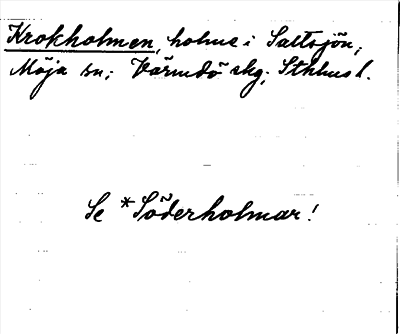 Krokholmen, holme i Saltsjön,
Möja sn; Värmdö skg; Sthlms l.
Se *Söderholmar!